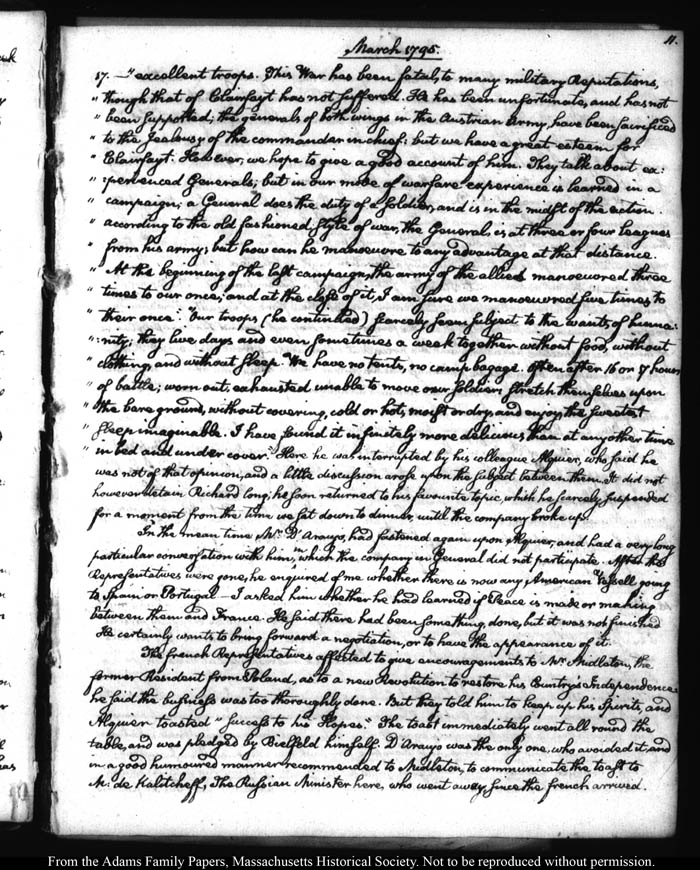 11.
March 1795.
17. — "excellent troops. This War has been fatal, to many military Reputations,
" though that of Clairfayt has not suffered. He has been unfortunate, and has not
" been supported; the generals of both wings in the Austrian Army, have been sacrificed
" to the Jealousy of the commander in chief: but we have a great esteem for
" Clairfayt. However, we hope to give a good account of him. They talk about ex:
" :perienced Generals; but in our mode of warfare experience is learned in a
" campaign; a General does the duty of a Soldier, and is in the midst of the action.
" according to the old fashioned style of war, the General is at three or four leagues
" from his army; but how can he manoeuvre to any advantage at that distance.
" At the beginning of the last campaign, the army of the allies manoeuvred three
" times to our once; and at the close of it, I am sure we manoeuvred five times to
" their once: "Our troops (he continued) scarcely seem subject to the wants of huma:
" :nity; they live days and even sometimes a week together without food, without
" clothing, and without sleep. We have no tents, no camp bagage. Often after 16 or 17 hours
" of battle; worn out, exhausted unable to move our Soldiers stretch themselves upon
" the bare ground, without covering, cold or hot, moist or dry, and enjoy the sweetest
" sleep imaginable. I have found it infinitely more delicious than at any other time
" in bed and under cover." Here he was interrupted by his colleague Alquier, who said he
was not of that opinion, and a little discussion arose upon the subject between them. It did not
however detain Richard long; he soon returned to his favourite topic, which he scarcely suspended
for a moment from the time we sat down to dinner, until the company broke up.
In the mean time Mr. D'Araujo, had fastened again upon Alquier, and had a very long
particular conversation with him, in which the company in General did not participate. After the
Representatives were gone, he enquired of me whether there is now any American Vessell going
to Spain or Portugal — I asked him whether he had learned if Peace is made or making
between them and France. He said there had been something done, but it was not finished
He certainly wants to bring forward a negotiation, or to have the appearance of it.
The french Representatives affected to give encouragements to Mr. Midleton, the
former Resident from Poland, as to a new Revolution to restore his Country's Independence
he said the business was too thoroughly done. But they told him to keep up his Spirits, and
Alquier toasted "Success to his Hopes." The toast immediately went all round the
table, and was pledged by Bielfeld himself. D'Araujo was the only one, who avoided it, and
in a good humoured manner recommended to Midleton, to communicate the toast to
M: de Kalitcheff, The Russian Minister here, who went away, since the french arrived.
From the Adams Family Papers, Massachusetts Historical Society. Not to be reproduced without permission.